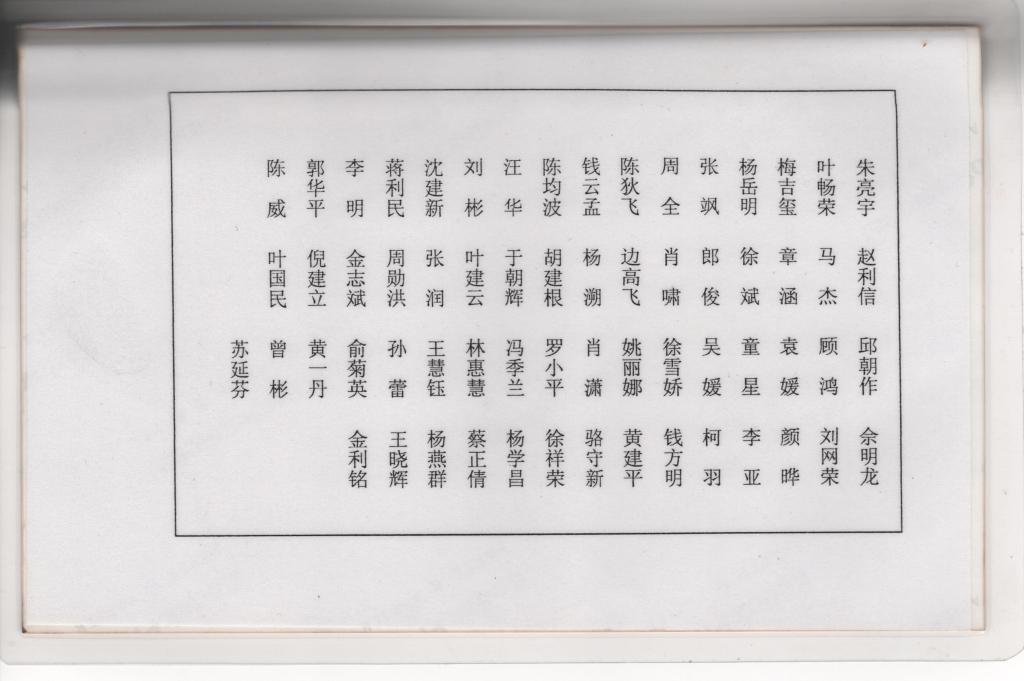 朱亮宇 赵利信 邱朝作 佘明龙
叶畅荣 马杰 顾鸿 刘网荣
梅吉玺 章涵 袁媛 颜晔
杨岳明 徐斌 童星 李亚
张飒 郎俊 吴媛 柯羽
周全 肖啸 徐雪娇 钱方明
陈狄飞 边高飞 姚丽娜 黄建平
钱云孟 杨溯 肖潇 骆守新
陈均波 胡建根 罗小平 徐祥荣
汪华 于朝辉 冯季兰 杨学昌
刘彬 叶建云 林惠慧 蔡正倩
沈建新 张润 王慧钰 杨燕群
蒋利民 周勋洪 孙蕾 王晓辉
李明 金志斌 俞菊英 金利铭
郭华平 倪建立 黄一丹
陈威 叶国民 曾彬
苏延芬